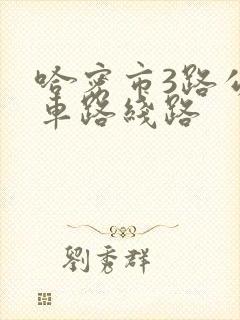 哈密市3路公
车路线路
劉秀群